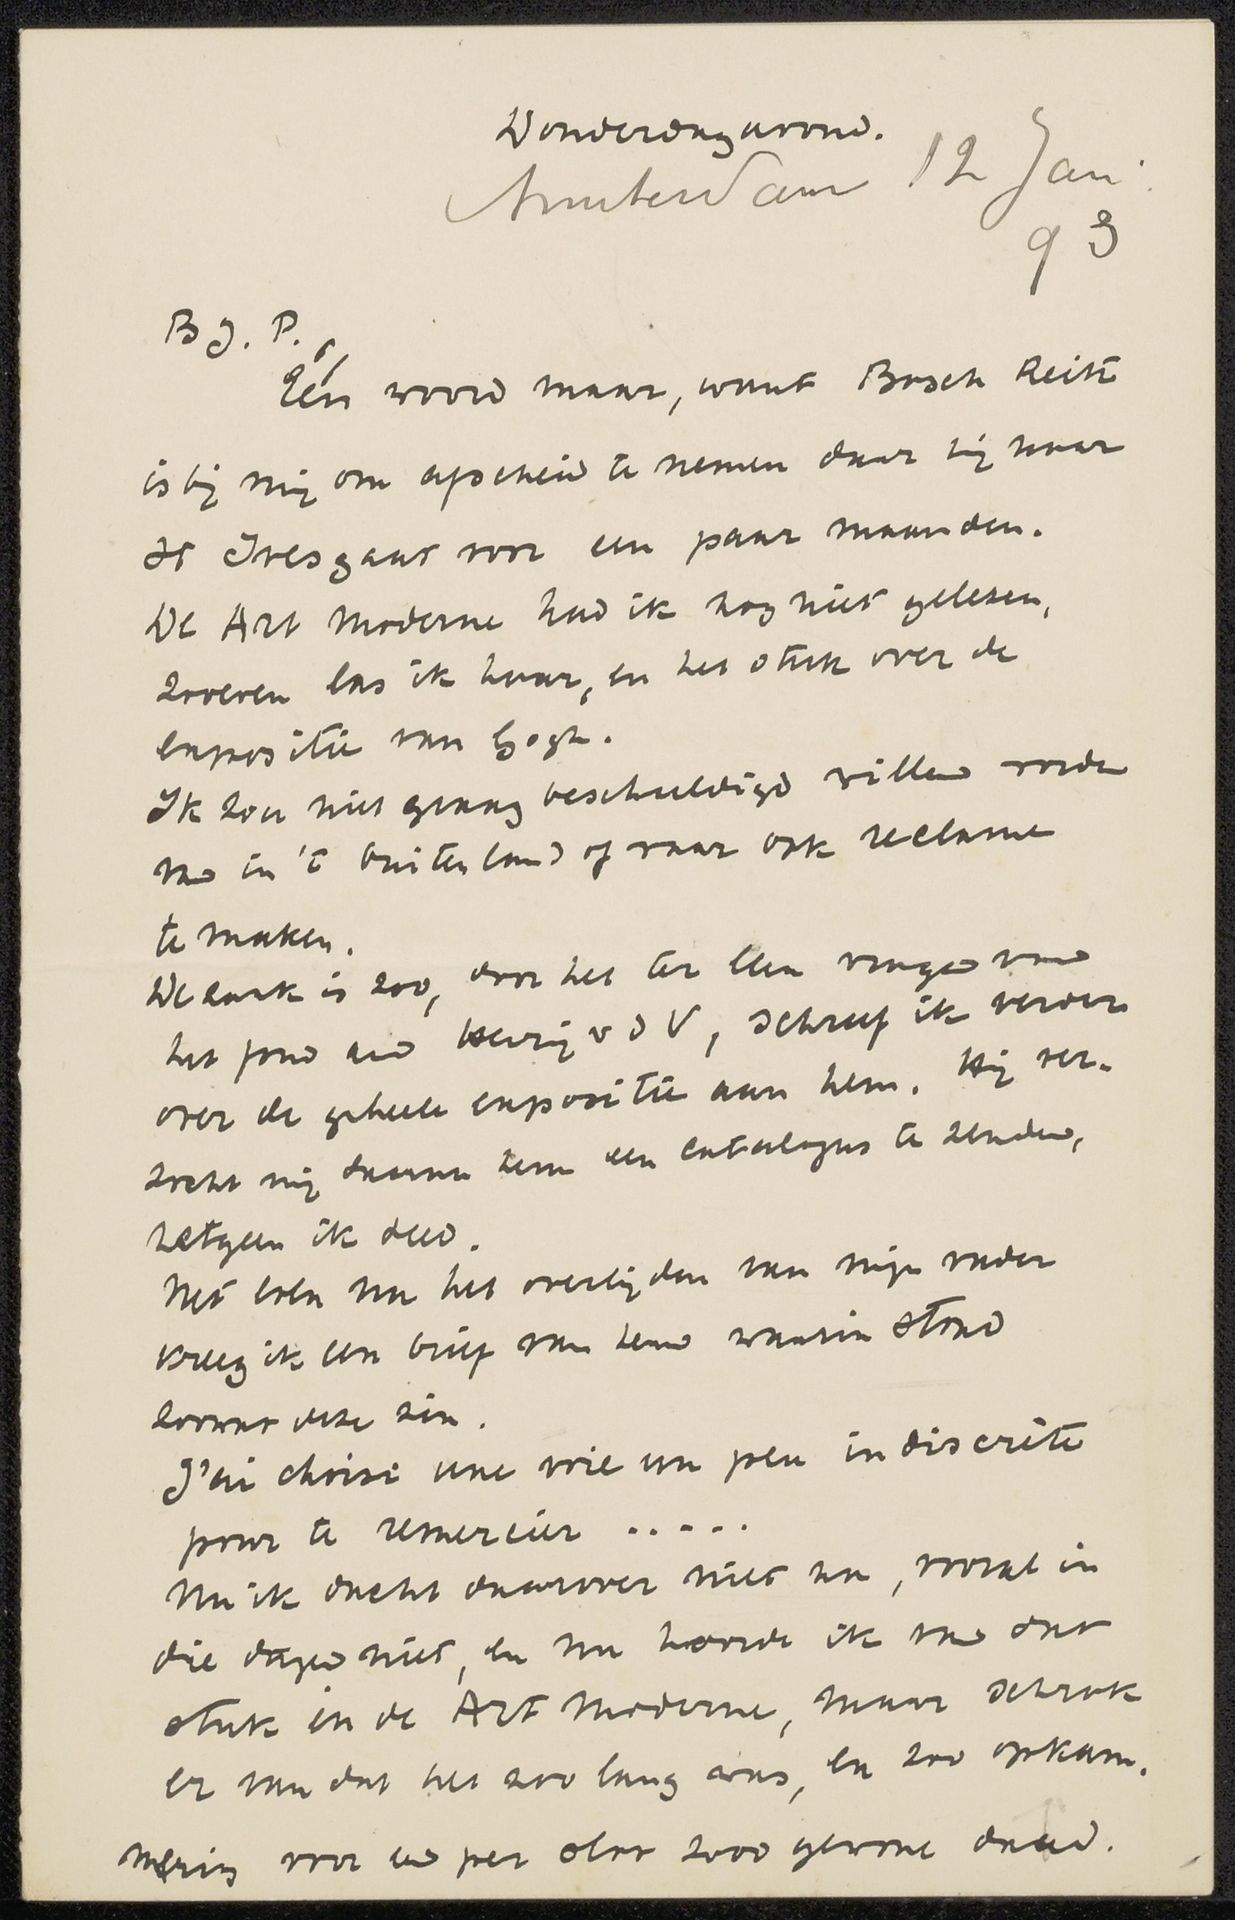 Donderdagavond.
Amsterdam 12 Jan.
93
B J. P.,
Eén woord maar, want Bosch Reitz
is bij mij om afscheid te nemen daar hij naar
St Ives gaat voor een paar maanden.
De Art Moderne had ik nog niet gelezen,
zooeven las ik haar, en het stuk over de
expositie van Gogh.
Ik zou niet graag beschuldigd willen worden
van in 't buitenland of waar ook reclame
te maken.
De zaak is zoo, door het ter leen vragen van
het fond aan Henry v d V, schreef ik verder
over de geheele expositie aan hem. Hij ver-
zocht mij daarna hem een catalogus te zenden,
hetgeen ik deed.
Net even na het overlijden van mijn vader
kreeg ik een brief van hem waarin stond
zoowat deze zin.
J'ai choisi une voie un peu indiscrète
pour te remercier .....
Nu ik dacht daarover niet na, vooral in
die dagen niet, en nu hoorde ik van dat
stuk in de Art Moderne, maar schrok
er van dat het zoo lang was, en zoo opkam.
voor en per slot zoo gewone daad.